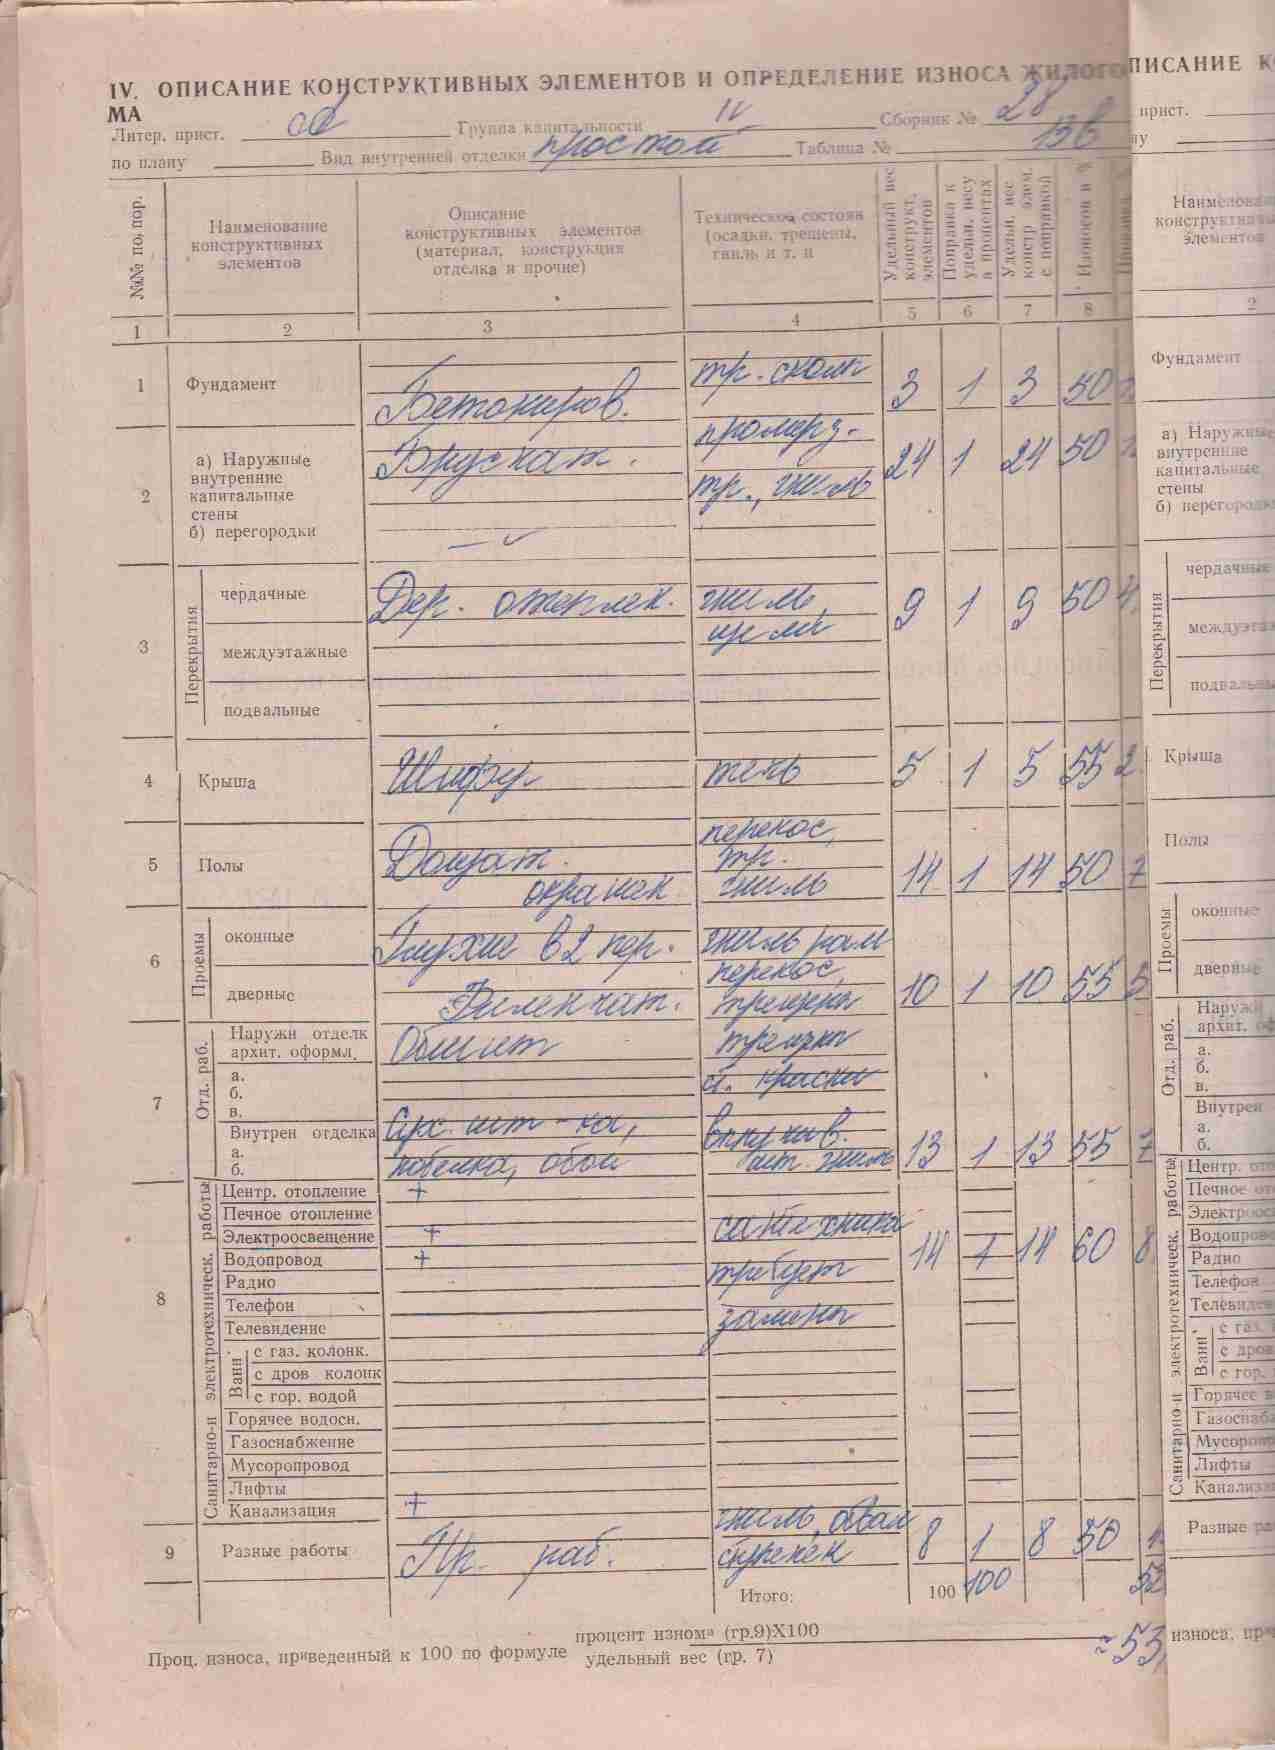 IV. ОПИСАНИЕ КОНСТРУКТИВНЫХ ЭЛЕМЕНТОВ И ОПРЕДЕЛЕНИЕ ИЗНОСА ЖИЛОГО
МА
Литер. прист. Группа капитальности IV Сборник № 28
по плану Вид внутренней отделки простой Таблица № 13в
№№ по. пор.
Наименование
конструктивных
элементов
Описание
конструктивных элементов
(материал, конструкция
отделка и прочие)
Техническое состоян
(осадки, трещены,
гниль и т. п
Удельный вес
конструкт,
элементов
Поправка к
удельн. весу
а процентах
Удельн. вес
констр элем.
с поправкой
Износов в %
1 2 3 4 5 6 7 8
1 Фундамент Бетониров. тр. сколы 3 1 3 50
2 а) Наружные
внутренние
капитальные
стены
б) перегородки
Брусчат. промерз.
тр., гниль 24 1 24 50
3 Перекрытия
чердачные Дер. отеплен. гниль,
щели 9 1 9 50 4.
междуэтажные
подвальные
4 Крыша Шифер течь 5 1 5 55 2.
5 Полы Дощат.
окрашен перекос,
тр.
гниль 14 1 14 50 7
6 Проемы
оконные Глухие в 2 пер. гниль рам
дверные Филенчат. перекос,
трещины 10 1 10 55 5
7 Отд. раб.
Наружн отделк
архит. оформл. Обшит трещны
а.
б.
в.
краски
Внутрен отделка Сух. шт-ка, выпучив.
а.
б. побелка, обои шт. гниль 13 1 13 55 7
8 Санитарно-и электротехническ. работы
Центр. отопление +
Печное отопление
Электроосвещение + сантехника
Водопровод + 14 1 14 60 8
Радио требует
Телефон
замены
Телевидение
Ванн
с газ. колонк.
с дров колонк
с гор. водой
Горячее водосн.
Газоснабжение
Мусоропровод
Лифты
Канализация +
9 Разные работы Пр. раб. гниль, обвал
ступенек 8 1 8 50
Итого: 100 100
процент изнома (гр.9)Х100
Проц. износа, приведенный к 100 по формуле
удельный вес (гр. 7)
≈ 53,
ПИСАНИЕ К
прист.
ну
Наименован
конструктивны
элементов
2
Фундамент
а) Наружные
внутренние
капитальные
стены
б) перегородки
Перекрытия
чердачные
междуэтаж
подвальны
Крыша
Полы
Проемы
оконные
дверные
Отд. раб.
Наружн
архит. оф
а.
б.
в.
Внутрен
а.
б.
Санитарно-и электротехническ. работы
Центр. ото
Печное от
Электроосв
Водопрово
Радио
Телефон
Телевиден
Ванн
с газ.
с дров
с гор.
Горячее в
Газоснаб
Мусоропро
Лифты
Канализа
Разные ра
износа, при